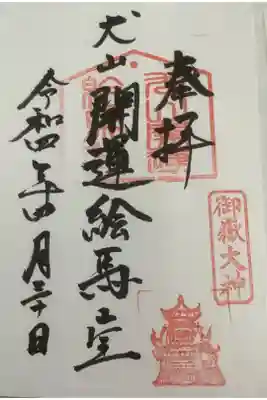 奉拝
御嶽大神
犬山開運絵馬堂
令和四年四月三十日